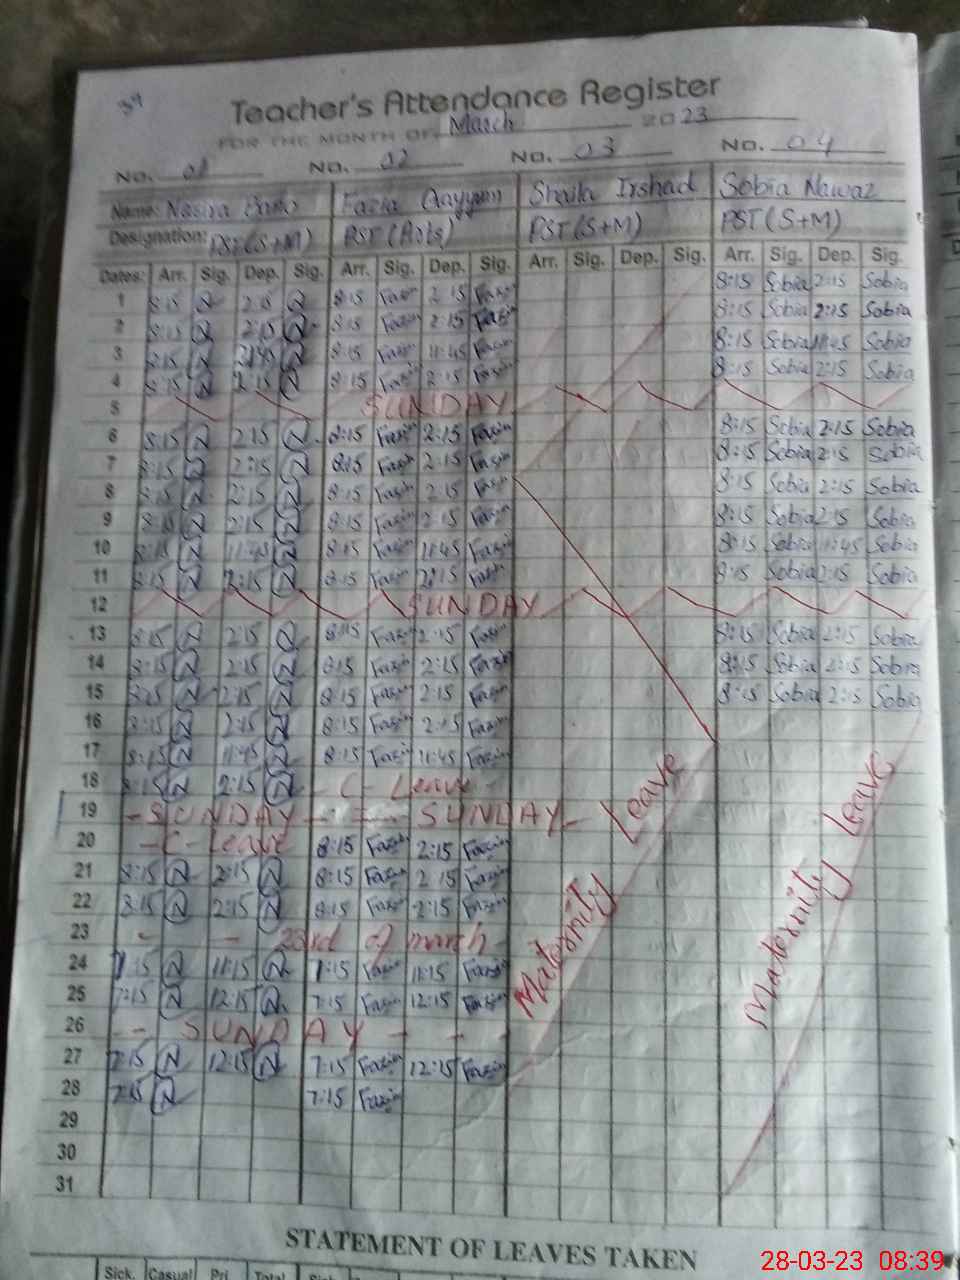 Teacher's Attendance Register
FOR THE MONTH OF March 2023
No. 01 No. 02 No. 03 No. 04
Name: Nasira Bano Fazia Qayyum Shaila Irshad Sobia Nawaz
Designation: PST(S+M) PST(Arts) PST(S+M) PST(S+M)
Dates: Arr. Sig. Dep. Sig. Arr. Sig. Dep. Sig. Arr. Sig. Dep. Sig. Arr. Sig. Dep. Sig.
1 8:15 N 2:15 N 8:15 Fazia 2:15 Fazia 8:15 Sobia 2:15 Sobia
2 8:15 N 2:15 N 8:15 Fazia 2:15 Fazia 8:15 Sobia 2:15 Sobia
3 8:15 N 11:45 N 8:15 Fazia 11:45 Fazia 8:15 Sobia 11:45 Sobia
4 8:15 N 2:15 N 8:15 Fazia 2:15 Fazia 8:15 Sobia 2:15 Sobia
5 SUNDAY
6 8:15 N 2:15 N 8:15 Fazia 2:15 Fazia 8:15 Sobia 2:15 Sobia
7 8:15 N 2:15 N 8:15 Fazia 2:15 Fazia 8:15 Sobia 2:15 Sobia
8 8:15 N 2:15 N 8:15 Fazia 2:15 Fazia 8:15 Sobia 2:15 Sobia
9 8:15 N 2:15 N 8:15 Fazia 2:15 Fazia 8:15 Sobia 2:15 Sobia
10 8:15 N 11:45 N 8:15 Fazia 11:45 Fazia 8:15 Sobia 11:45 Sobia
11 8:15 N 2:15 N 8:15 Fazia 2:15 Fazia 8:15 Sobia 2:15 Sobia
12 SUNDAY
13 8:15 N 2:15 N 8:15 Fazia 2:15 Fazia 8:15 Sobia 2:15 Sobia
14 8:15 N 2:15 N 8:15 Fazia 2:15 Fazia 8:15 Sobia 2:15 Sobia
15 8:15 N 2:15 N 8:15 Fazia 2:15 Fazia 8:15 Sobia 2:15 Sobia
16 8:15 N 2:15 N 8:15 Fazia 2:15 Fazia
17 8:15 N 11:45 N 8:15 Fazia 11:45 Fazia
18 8:15 N 2:15 N - C - Leave -
19 - SUNDAY - - SUNDAY -
20 - C - Leave 8:15 Fazia 2:15 Fazia
21 8:15 N 2:15 N 8:15 Fazia 2:15 Fazia
22 8:15 N 2:15 N 8:15 Fazia 2:15 Fazia
23 - - 23rd of march -
24 7:15 N 11:15 N 7:15 Fazia 11:15 Fazia
25 7:15 N 12:15 N 7:15 Fazia 12:15 Fazia
26 - - SUNDAY - - -
27 7:15 N 12:15 N 7:15 Fazia 12:15 Fazia
28 7:15 N 7:15 Fazia
29
30
31
Maternity Leave
Maternity Leave
STATEMENT OF LEAVES TAKEN
Sick. Casual Pri Total Sick
28-03-23 08:39